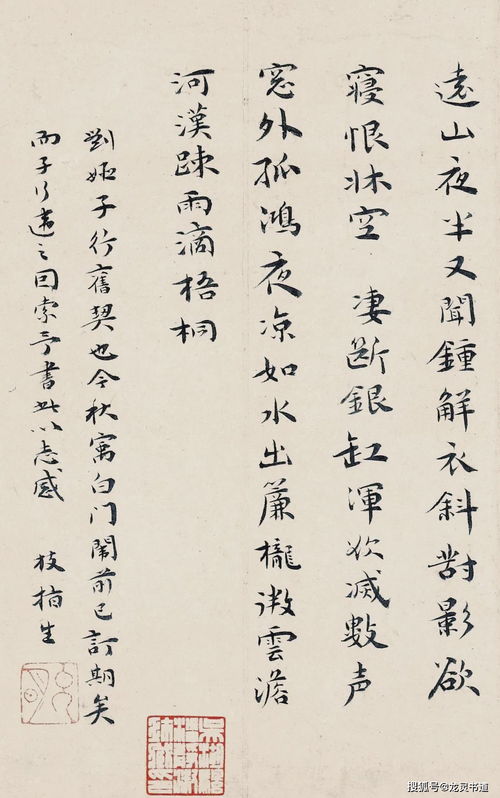 遠山夜半又聞鍾解衣斜對影欲
寢恨牀空　凄斷銀缸渾欲滅數声
窓外孤鴻夜凉如水出簾櫳微雲澹
河漢踈雨滴梧桐
劉姬子行舊契也今秋寓白门闈前已訂期矣
而子行遠之回索予書此以志感　枝指生
搜狐号@龙灵书道